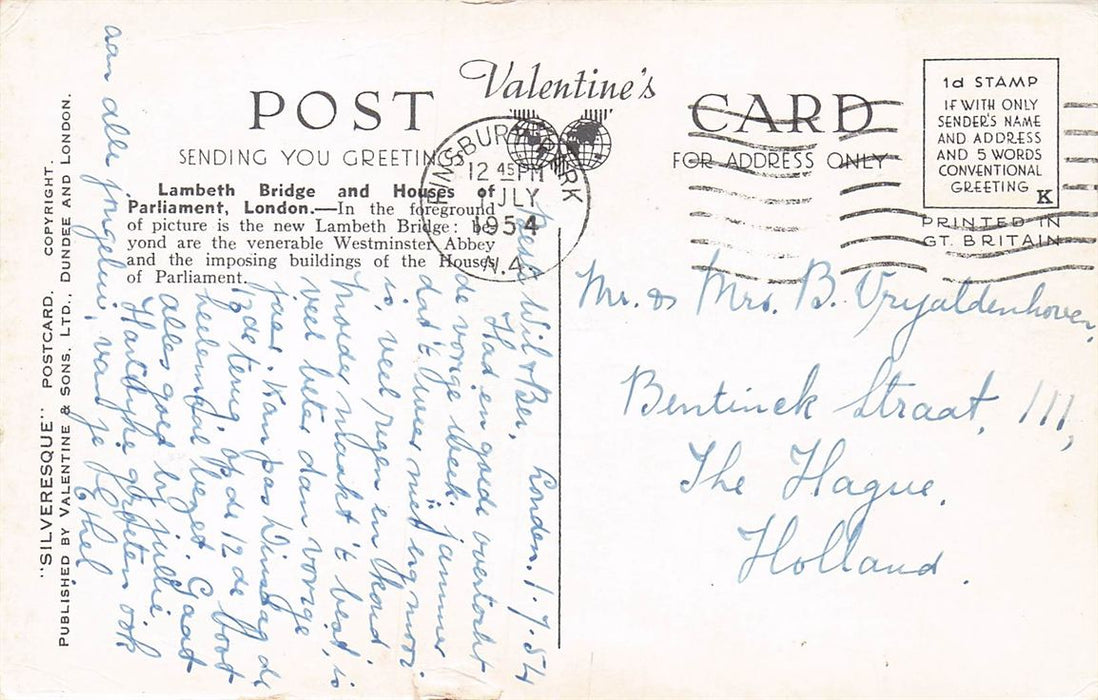 Valentine's
POST CARD
SENDING YOU GREETINGS
FOR ADDRESS ONLY
Lambeth Bridge and Houses of
Parliament, London.—In the foreground
of picture is the new Lambeth Bridge: be-
yond are the venerable Westminster Abbey
and the imposing buildings of the Houses
of Parliament.
"SILVERESQUE" POSTCARD. COPYRIGHT.
PUBLISHED BY VALENTINE & SONS, LTD., DUNDEE AND LONDON.
FINSBURY PARK
12 45 PM
1 JLY
1954
N.4
1d STAMP
IF WITH ONLY
SENDER'S NAME
AND ADDRESS
AND 5 WORDS
CONVENTIONAL
GREETING
K
PRINTED IN
GT. BRITAIN
London. 1.7.54
Beste Wil & Ben,
Had en goede overtocht
de vorige week. jammer
dat 't weer niet erg mooi
is, veel regen en koud
moeder maakt 't best, is
veel beter dan vorige
jaar. Kan pas Dinsdag de
13de terug, op de 12de boot
heelemaal bezet. Gaat
alles goed bij jullie.
Hartelyke groeten ook
aan alle jongelui, van je Ethel
Mr. & Mrs. B. Vryaldenhoven,
Bentinck Straat, 111,
The Hague.
Holland.